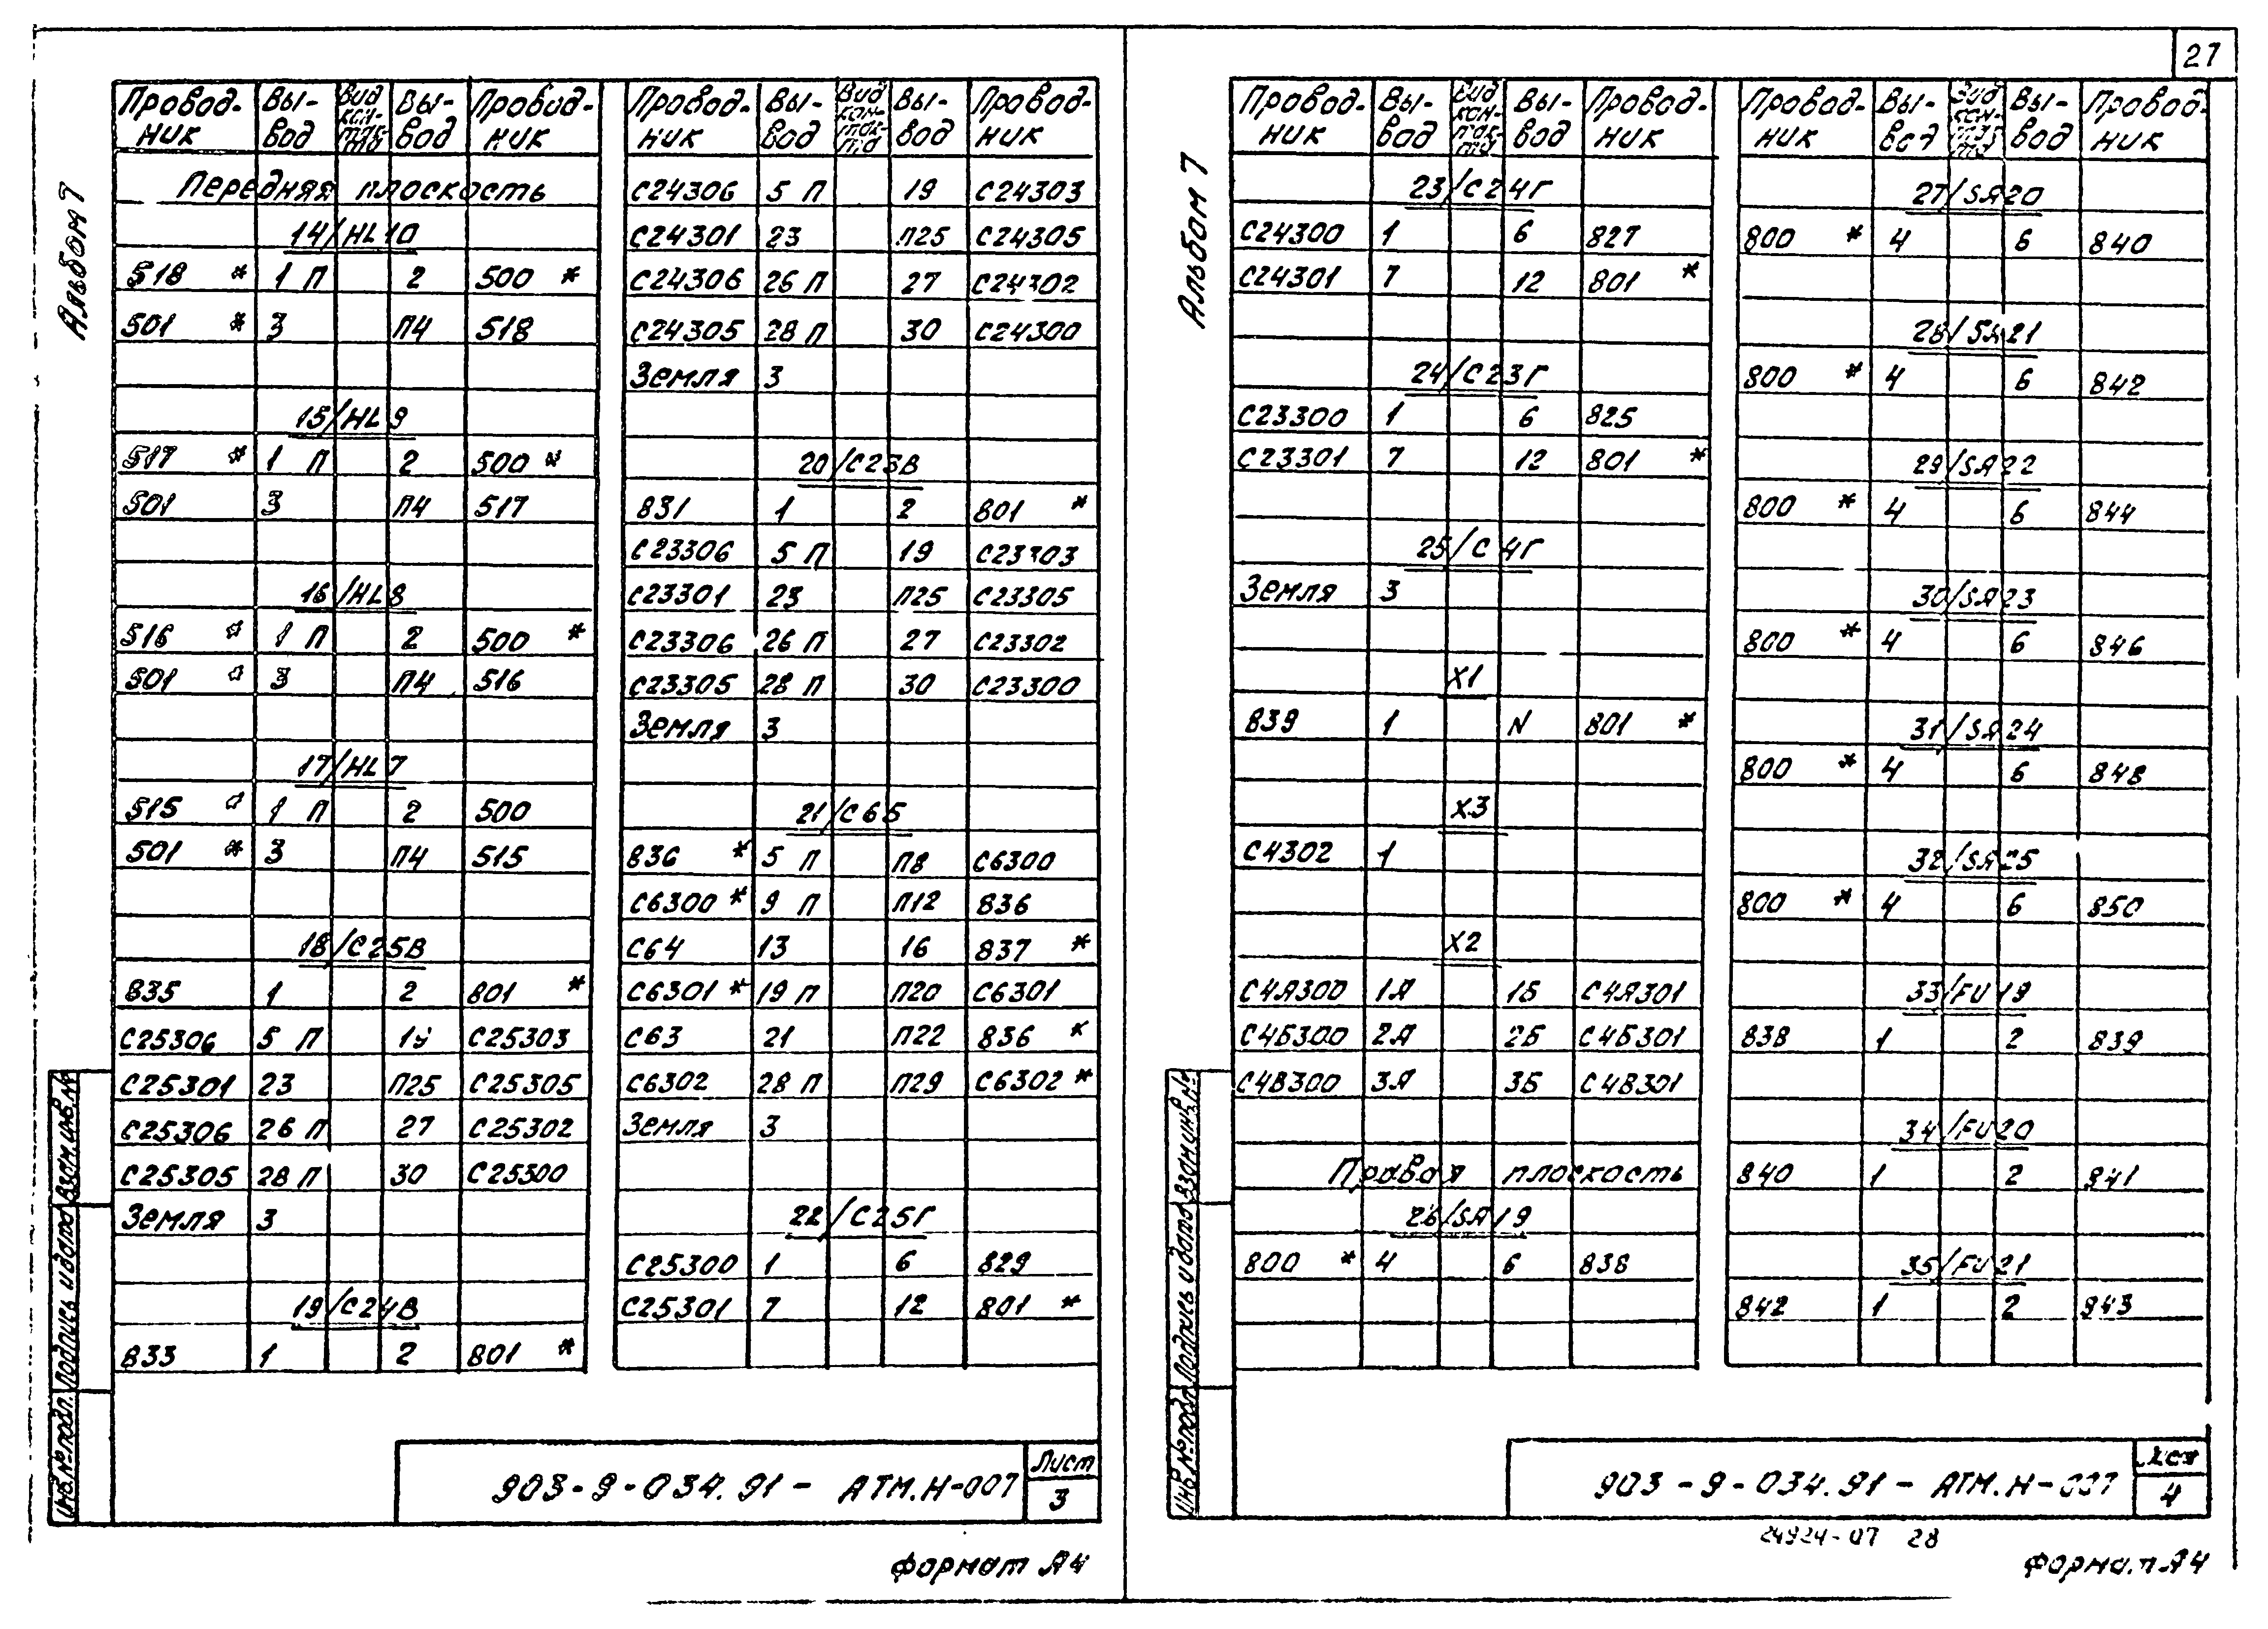 27
Альбом 7
Провод-ник Вы-вод Вид кон-такта Вы-вод Провод-ник
Передняя плоскость
14/HL10
518 * 1 П 2 500 *
501 * 3 П4 518
15/HL9
517 * 1 П 2 500 *
501 3 П4 517
16/HL8
516 * 1 П 2 500 *
501 * 3 П4 516
17/HL7
515 * 1 П 2 500
501 * 3 П4 515
18/С25В
835 1 2 801 *
С25306 5 П 19 С25303
С25301 23 П25 С25305
С25306 26 П 27 С25302
С25305 28 П 30 С25300
Земля 3
19/С24В
833 1 2 801 *
Провод-ник Вы-вод Вид кон-такта Вы-вод Провод-ник
С24306 5 П 19 С24303
С24301 23 П25 С24305
С24306 26 П 27 С24302
С24305 28 П 30 С24300
Земля 3
20/С23В
831 1 2 801 *
С23306 5 П 19 С23303
С23301 23 П25 С23305
С23306 26 П 27 С23302
С23305 28 П 30 С23300
Земля 3
21/С6Б
836 * 5 П П8 С6300
С6300 * 9 П П12 836
С64 13 16 837 *
С6301 * 19 П П20 С6301
С63 21 П22 836 *
С6302 28 П П29 С6302 *
Земля 3
22/С25Г
С25300 1 6 829
С25301 7 12 801 *
Инв.№подл. Подпись и дата Взам.инв.№
903-9-034.91 - АТМ.Н-007
Лист
3
Формат А4
Альбом 7
Провод-ник Вы-вод Вид кон-такта Вы-вод Провод-ник
23/С24Г
С24300 1 6 827
С24301 7 12 801 *
24/С23Г
С23300 1 6 825
С23301 7 12 801 *
25/С4Г
Земля 3
Х1
839 1 N 801 *
Х3
С4302 1
Х2
С4А300 1А 1Б С4А301
С4Б300 2А 2Б С4Б301
С4В300 3А 3Б С4В301
Правая плоскость
26/SA19
800 * 4 6 838
Провод-ник Вы-вод Вид кон-такта Вы-вод Провод-ник
27/SA20
800 * 4 6 840
28/SA21
800 * 4 6 842
29/SA22
800 * 4 6 844
30/SA23
800 * 4 6 846
31/SA24
800 * 4 6 848
32/SA25
800 * 4 6 850
33/FU19
838 1 2 839
34/FU20
840 1 2 841
35/FU21
842 1 2 843
Инв.№подл. Подпись и дата Взам.инв.№
903-9-034.91 - АТМ.Н-007
Лист
4
24924-07 28
Формат А4